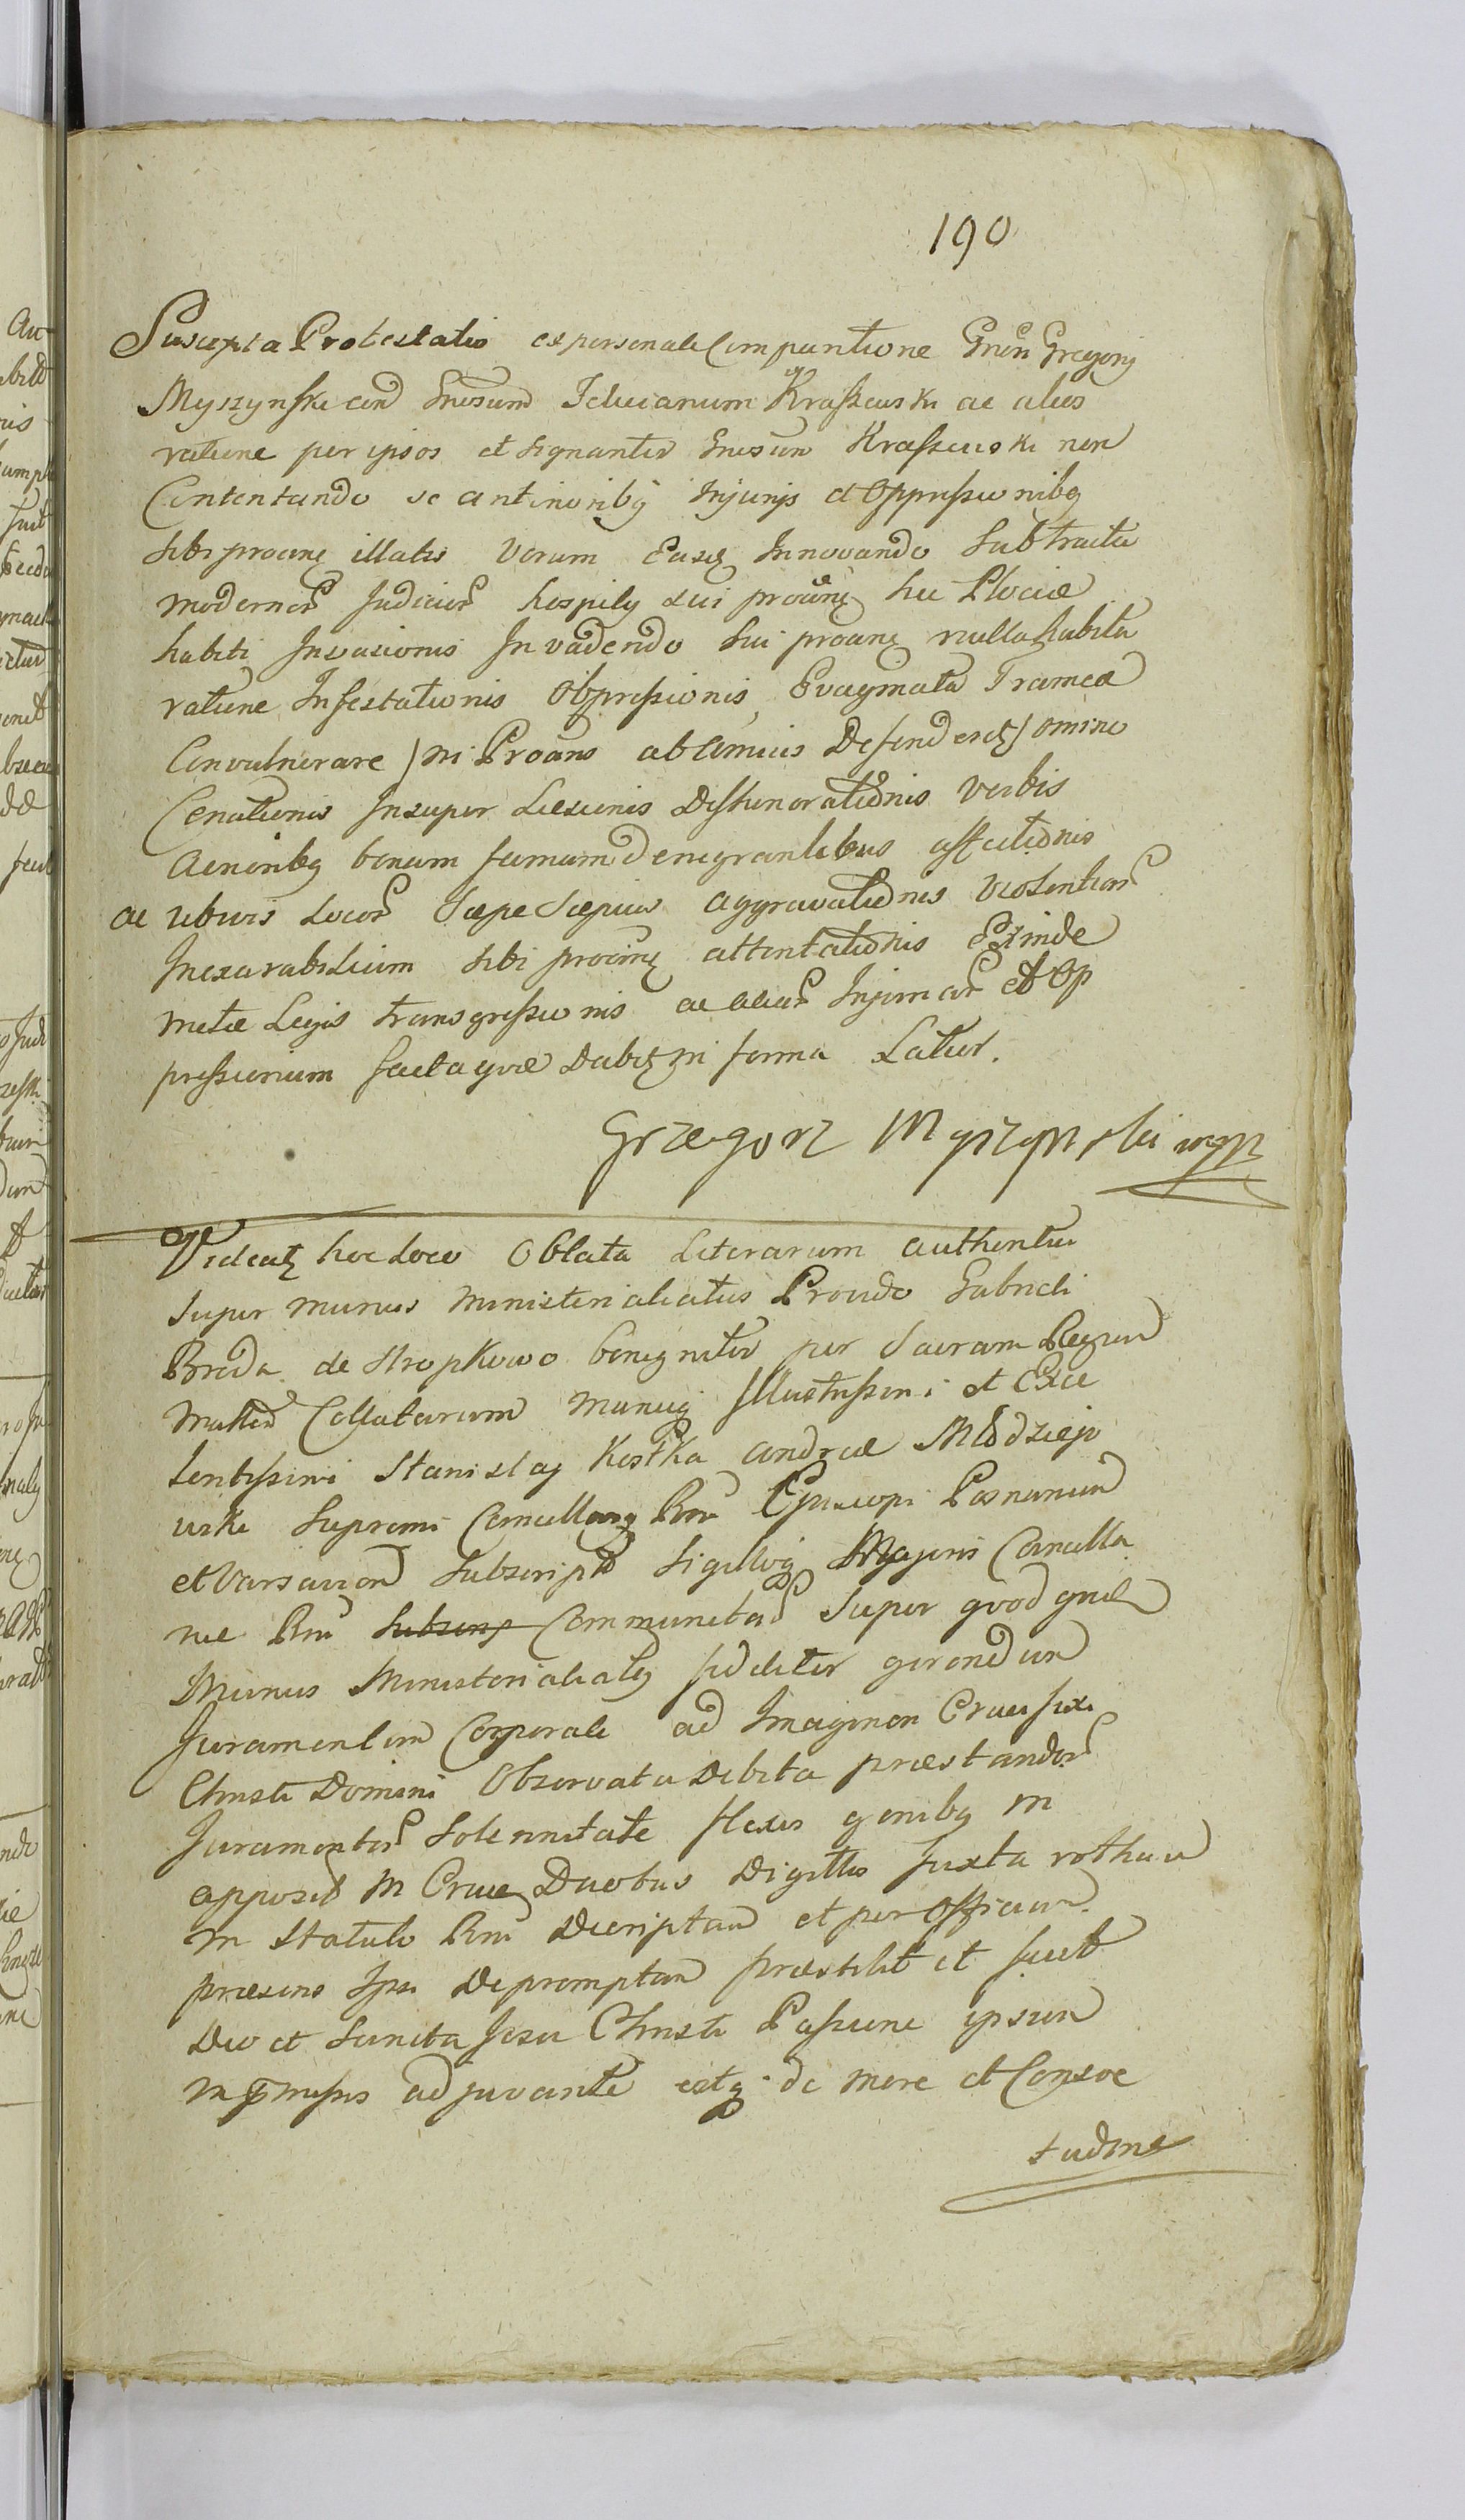 190
Suscepta Protestatio ex personali Comparitione Gnsi Gregorij
Myszynski cond Gnosum Felicianum Krassewski ac alios
ratione per ipsos et signanter Gnosum Krassewski non
Contentando se anterioribq Injurijs et Oppressionibq
sibi proting illatis Verum Easq Innovando Subtractu
modernor Judicior hospitij sui proting hic Plociae
habiti Invasionis Invadendo sui proting nulla habita
ratione Infestationis Oppressionis, Evaginata Framea
Convulnerare / ni Protans ab Amicis Defenderetz / omino
Conationis Insuper Laesionis Dishonorationis Verbis
Acrioribq bonam famam denigrantibus affectionis
ac ubivis Locor Saepe Saepius aggravationis Violentiar
Inexarabilium sibi proting attentationis Exinde
metae Legis transgressionis ac aliar Injuriar et Op
pressionum factaque Dabitz in forma Latior.
Grzegorz Myszynski mpp
Videatz hoc Loco Oblata Literarum authentica
super munus ministerialiatus Provido Gabrieli
Broda de Stropkowo benigniter per Sacram Regiam
Mattem Collatarum Manuq Illustrissimi et Exce
lentissimi Stanislaij Kostka Andreae Młodziejo
wski Supremi Cancellarij Rni Episcopi Posnanien
et Varsavien Subscript Sigilloq Majoris Cancella
riae Rni Communitar Super quod quidem
Munus Ministerialiatq fideliter gerendum
Juramentum Corporale ad Imaginem Crucifixi
Christi Domini Observata Debita praestandor
Juramentor Solennitate flexis genibq in
apposit in Cruce Duobus Digitis Juxta rotham
in Statuto Rni Descriptam et per Officium
praesens Ipsi Depromptam praestitit et fecit
Deo et Sancta Jesu Christi Passione ipsum
in pmissis adjuvante estq de more et Consve
tudine